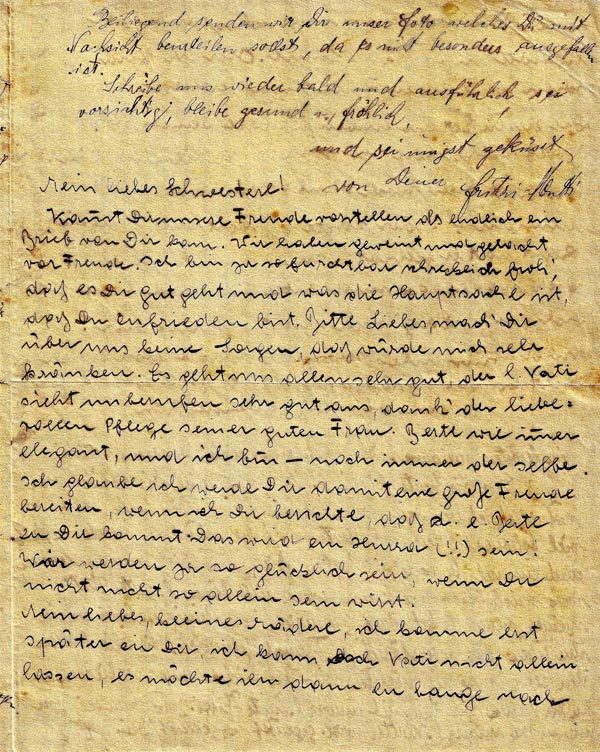 Beiliegend senden wir Dir unser Foto welches Du mit
Nachsicht beurteilen sollst, da es nit besonders ausgefallen
ist.
Schreibe uns wieder bald und ausführlich, sei
vorsichtig, bleibe gesund u. fröhlich,
und sei innigst geküsst
von Deiner Mutti
Mein liebes Schwesterl!
Kannst Dir unsere Freude vorstellen als endlich ein
Brief von Dir kam. Wir haben geweint und gelacht
vor Freude. Ich bin ja so furchtbar schrecklich froh,
daß es Dir gut geht und was die Hauptsache ist,
daß Du zufrieden bist. Bitte Liebes mach' Dir
über uns keine Sorgen, daß würde mich sehr
kränken. Es geht uns allen sehr gut, der l. Vati
sieht unberufen sehr gut aus, dank' der liebe-
vollen Pflege seiner guten Frau. Berte wie immer
elegant, und ich bin – noch immer der selbe.
Ich glaube ich werde Dir damit eine große Freude
bereiten, wenn ich Dir berichte, daß d. l. Berte
zu Dir kommt. Das wird ein (!!) sein.
Wir werden ja so glücklich sein, wenn Du
nicht nicht so allein sein wirst.
Mein liebes, kleines Mädele, ich komme erst
später zu Dir, ich kann doch Vati nicht allein
lassen, es möchte ihm dann zu bange nach